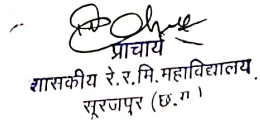 प्राचार्य
शासकीय रे.र.मि.महाविद्यालय.
सूरजपुर (छ.ग)